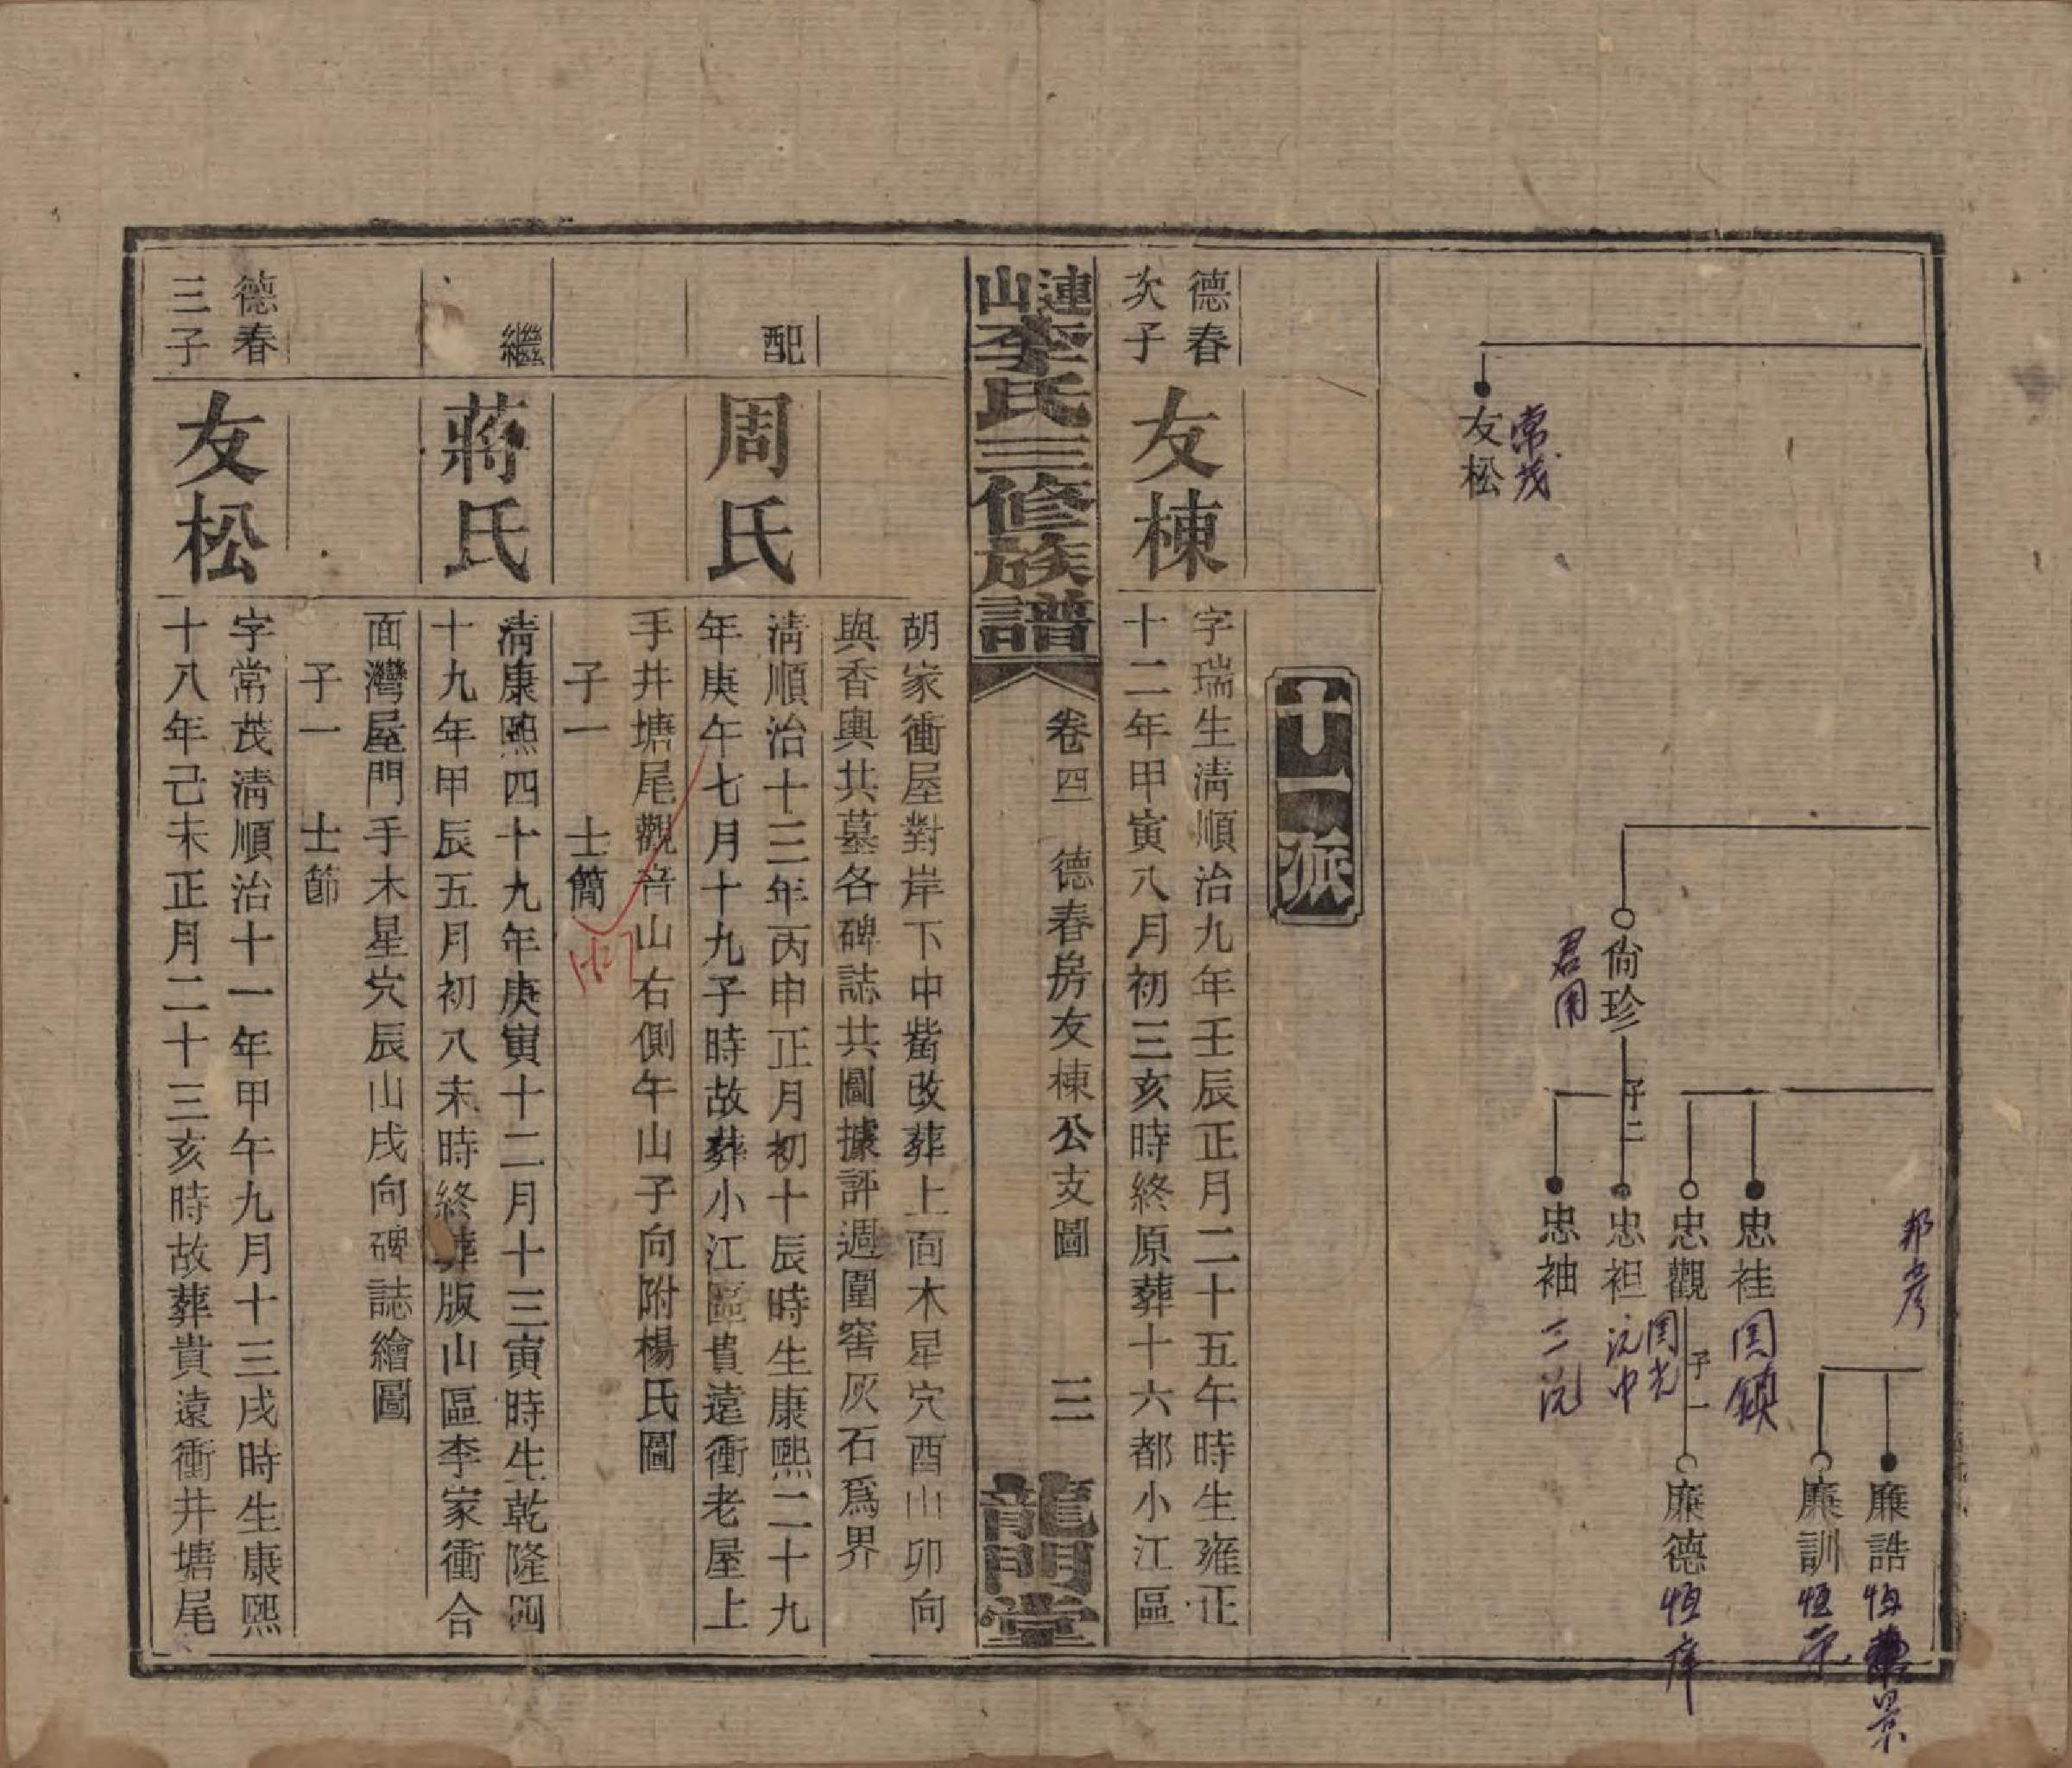 友松
常茂
尙珍
君用
子二
忠袿
忠觀
忠袒
忠袖
子一
邦彦
廉誥
廉訓
廉德
十一派
德春
次子
友棟
字瑞生淸順治九年壬辰正月二十五午時生雍正
十二年甲寅八月初三亥時終原葬十六都小江區
漣山李氏三修族譜
卷四
德春房友棟公支圖
三
龍門堂
胡家衝屋對岸下中嶲改葬上面木星穴酉山卯向
與香輿共墓各碑誌共圖據評週圍窖灰石爲界
配
周氏
淸順治十三年丙申正月初十辰時生康熙二十九
年庚午七月十九子時故葬小江區貴遠衝老屋上
手井塘尾觀音山右側午山子向附楊氏圖
子一 士簡
繼
蔣氏
淸康熙四十九年庚寅十二月十三寅時生乾隆四
十九年甲辰五月初八未時終葬版山區李家衝合
面灣屋門手木星穴辰山戌向碑誌繪圖
子一 士節
德春
三子
友松
字常茂淸順治十一年甲午九月十三戌時生康熙
十八年己未正月二十三亥時故葬貴遠衝井塘尾